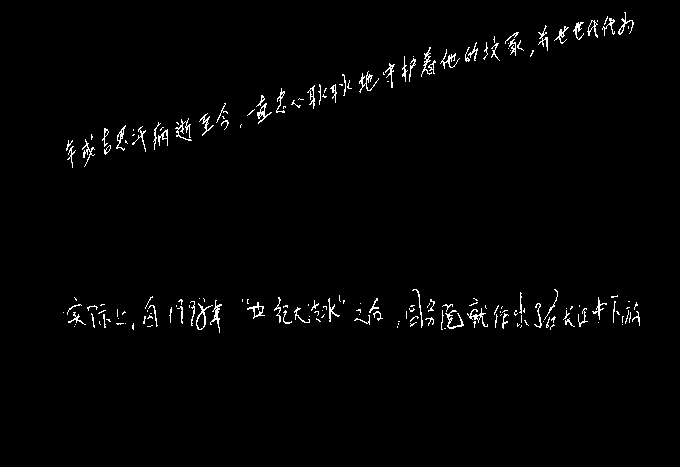 年成吉思汗病逝至今，一直忠心耿耿地守护着他的坟冢，并世世代代为
实际上，自1998年“世纪大洪水”之后，国务院就作出了在长江中下游